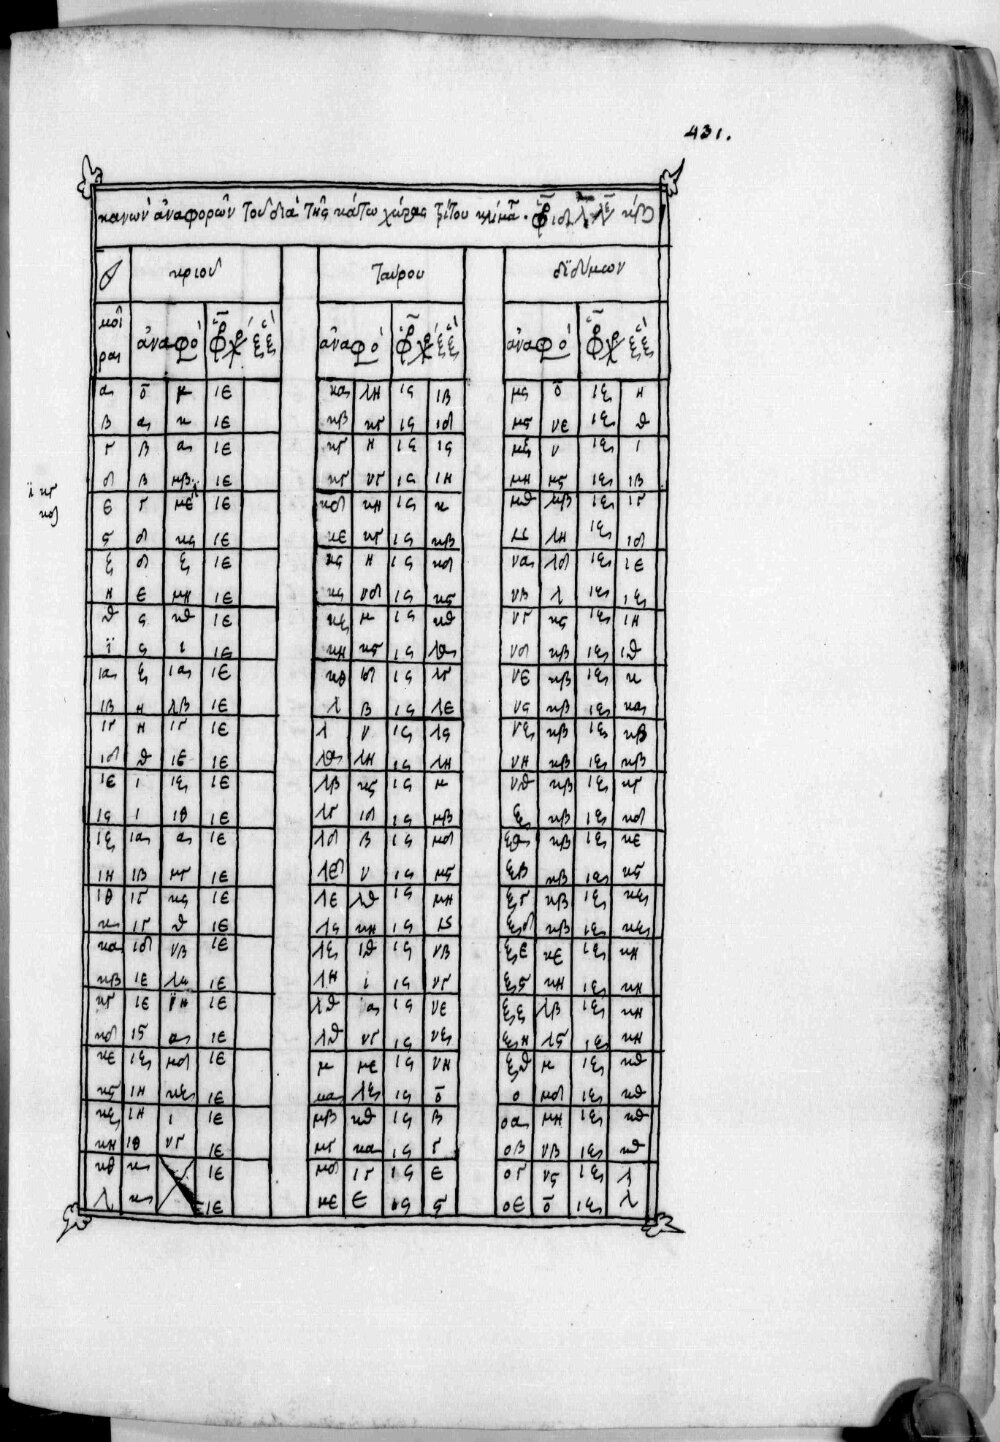 431.
κανών ἀναφορῶν τοῦ διὰ τῆς κάτω χώρας τρίτου κλίματ
κριοῦ ταύρου διδύμων
μοῖραι ἀναφο ἀναφο ἀναφο
α ο κ ιε κα λη ις ιβ μς ο ιζ η
β α κ ιε κβ κγ ις ιδ μς νε ιζ θ
γ β α ιε κγ η ις ις μζ ν ιζ ι
δ β μβ ιε κγ νγ ις ιη μη μς ιζ ιβ
ϊ κγ
ε γ με ιε κδ κη ις κ μθ μβ ιζ ιγ
κδ
ς δ κς ιε κε κγ ις κβ ν λη ιζ ιδ
ζ δ ζ ιε κς η ις κδ να λδ ιζ ιε
η ε μη ιε κς νδ ις κς νβ λ ιζ ιζ
θ ς κθ ιε κζ μ ις κθ νγ κς ιζ ιη
ϊ ς ι ιε κη κς ις λα νδ κβ ιζ ιθ
ια ζ ια ιε κθ ιδ ις λγ νε κβ ιζ κ
ιβ η λβ ιε λ β ις λε νς κβ ιζ κα
ιγ η ιγ ιε λ ν ις λς νζ κβ ιζ κβ
ιδ θ ιε ιε λα λη ις λη νη κβ ιζ κβ
ιε ι ιζ ιε λβ κς ις μ νθ κβ ιζ κγ
ις ι ιθ ιε λγ ιδ ις μβ ξ κβ ιζ κδ
ιζ ια α ιε λδ β ις μδ ξα κβ ιζ κε
ιη ιβ μγ ιε λδ ν ις μς ξβ κβ ιζ κς
ιθ ιγ κς ιε λε λθ ις μη ξγ κβ ιζ κζ
κ ιγ θ ιε λς κη ις ν ξδ κβ ιζ κζ
κα ιδ νβ ιε λζ ιθ ις νβ ξε κε ιζ κη
κβ ιε λα ιε λη ι ις νγ ξς κη ιζ κη
κγ ιε ιη ιε λθ α ις νε ξζ λβ ιζ κη
κδ ις α ιε λθ νγ ις νζ ξη λς ιζ κη
κε ιζ μδ ιε μ με ις νη ξθ μ ιζ κθ
κς ιη κζ ιε μα λζ ις ο ο μδ ιζ κθ
κζ ιη ι ιε μβ κθ ις β οα μη ιζ κθ
κη ιθ νγ ιε μγ κα ις γ οβ νβ ιζ κθ
κθ κ ιε μδ ιγ ις ε ογ νς ιζ λ
λ κ ιε με ε ις ς οε ο ιζ λ